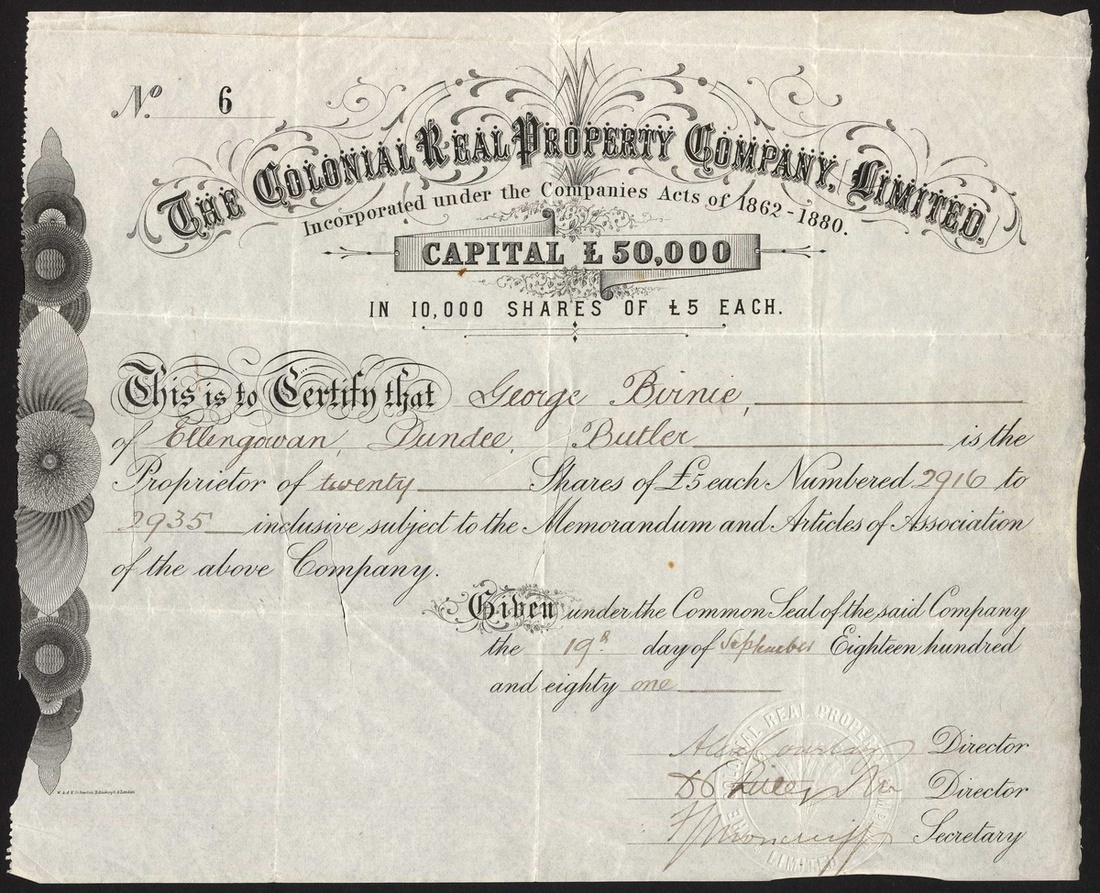 No. 6
THE COLONIAL REAL PROPERTY COMPANY, LIMITED,
Incorporated under the Companies Acts of 1862-1880.
CAPITAL £50,000
IN 10,000 SHARES OF £5 EACH.
This is to Certify that George Birnie,
of Ellengowan, Dundee, Butler is the
Proprietor of twenty Shares of £5 each Numbered 2916 to
2935 inclusive subject to the Memorandum and Articles of Association
of the above Company.
Given under the Common Seal of the said Company
the 19th day of September Eighteen hundred
and eighty one
Director
Director
Secretary
W. & A. K. Johnston, Edinburgh & London
REAL PROPER
LIMITED